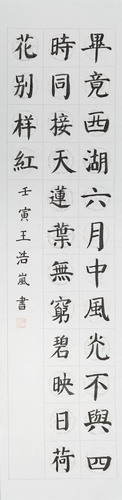 畢竟西湖六月中風光不與四
時同接天蓮葉無窮碧映日荷
花别样紅
壬寅王浩嵐書